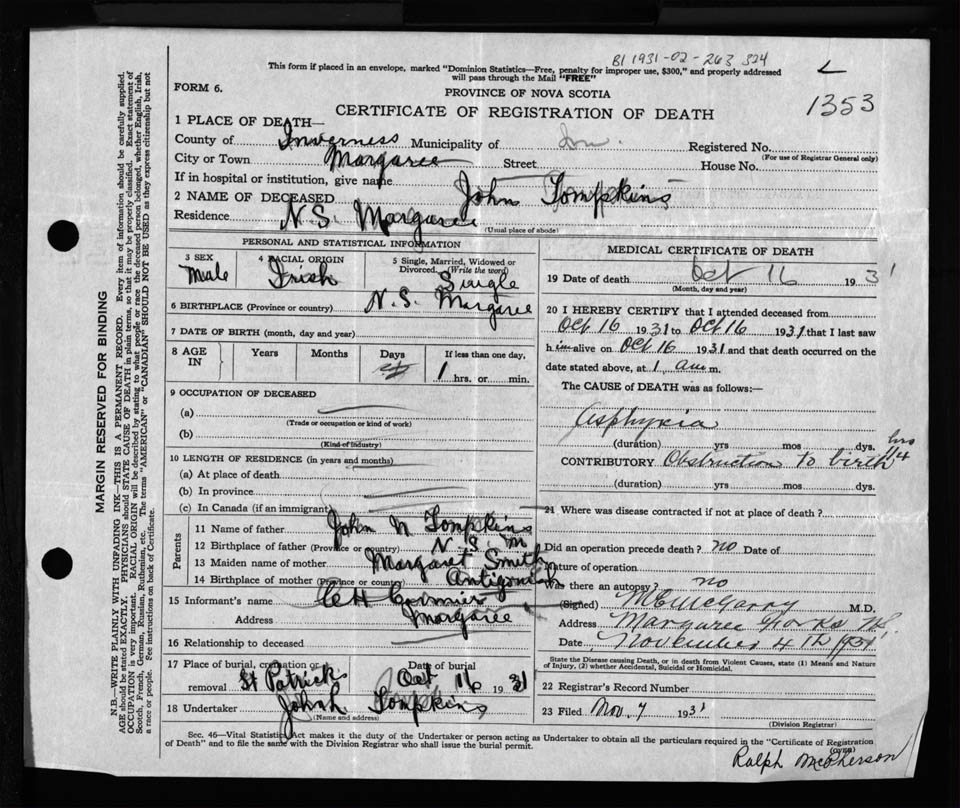 B1 1931-02-263 324
This form if placed in an envelope, marked "Dominion Statistics—Free, penalty for improper use, $300," and properly addressed
will pass through the Mail "FREE"
FORM 6.
PROVINCE OF NOVA SCOTIA
1353
CERTIFICATE OF REGISTRATION OF DEATH
1 PLACE OF DEATH—
County of Inverness Municipality of Registered No.
(For use of Registrar General only)
City or Town Margaree Street House No.
If in hospital or institution, give name
2 NAME OF DECEASED John Tompkins
Residence N.S. Margaree
(Usual place of abode)
PERSONAL AND STATISTICAL INFORMATION
3 SEX Male
4 RACIAL ORIGIN Irish
5 Single, Married, Widowed or Divorced. (Write the word) Single
6 BIRTHPLACE (Province or country) N.S. Margaree
7 DATE OF BIRTH (month, day and year)
8 AGE IN Years Months Days If less than one day, 1 hrs. or min.
9 OCCUPATION OF DECEASED
(a)
(Trade or occupation or kind of work)
(b)
(Kind of Industry)
10 LENGTH OF RESIDENCE (in years and months)
(a) At place of death
(b) In province
(c) In Canada (if an immigrant)
Parents
11 Name of father John N Tompkins
12 Birthplace of father (Province or country) N.S. M
13 Maiden name of mother Margaret Smith
14 Birthplace of mother (Province or country) Antigonish
15 Informant's name Cormier
Address Margaree
16 Relationship to deceased
17 Place of burial, cremation or removal St Patricks Date of burial Oct 16 1931
18 Undertaker John Tompkins
(Name and address)
MEDICAL CERTIFICATE OF DEATH
19 Date of death Oct 16 1931
(Month, day and year)
20 I HEREBY CERTIFY that I attended deceased from
Oct 16 1931 to Oct 16 1931 that I last saw
him alive on Oct 16 1931 and that death occurred on the
date stated above, at 1 am m.
The CAUSE of DEATH was as follows:—
Asphyxia
(duration) yrs mos dys. hrs
CONTRIBUTORY Obstruction to birth
(duration) yrs mos dys.
21 Where was disease contracted if not at place of death?
Did an operation precede death? no Date of
Nature of operation
Was there an autopsy? no
(Signed) McGarry M.D.
Address Margaree Forks NS
Date November 4th 1931
State the Disease causing Death, or in death from Violent Causes, state (1) Means and Nature
of Injury, (2) whether Accidental, Suicidal or Homicidal.
22 Registrar's Record Number
23 Filed Nov. 7 1931
(Division Registrar)
Sec. 46—Vital Statistics Act makes it the duty of the Undertaker or person acting as Undertaker to obtain all the particulars required in the "Certificate of Registration
of Death" and to file the same with the Division Registrar who shall issue the burial permit.
(OVER)
Ralph McPherson
MARGIN RESERVED FOR BINDING
N.B.—WRITE PLAINLY WITH UNFADING INK—THIS IS A PERMANENT RECORD. Every item of information should be carefully supplied.
AGE should be stated EXACTLY. PHYSICIANS should STATE CAUSE OF DEATH in plain terms, so that it may be properly classified. Exact statement of
OCCUPATION is very important. RACIAL ORIGIN will be described by stating to what people or race the deceased person belonged, whether English, Irish,
Scotch, French, German, Russian, Ruthenian, etc. The terms "AMERICAN" or "CANADIAN" SHOULD NOT BE USED as they express citizenship but not
a race or people. See instructions on back of Certificate.